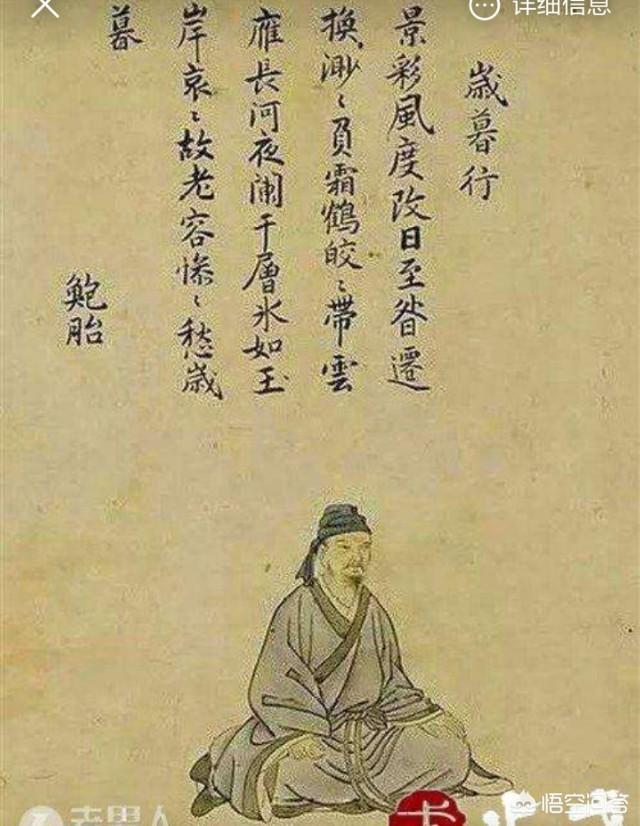 详细信息
嵗暮行
景彩風度改日至昝遷
換渺〻負霜鶴皎〻帶雲
雁長河夜闌干層氷如玉
岸哀〻故老容慘〻愁歳
暮
鮑胎
悟空问答